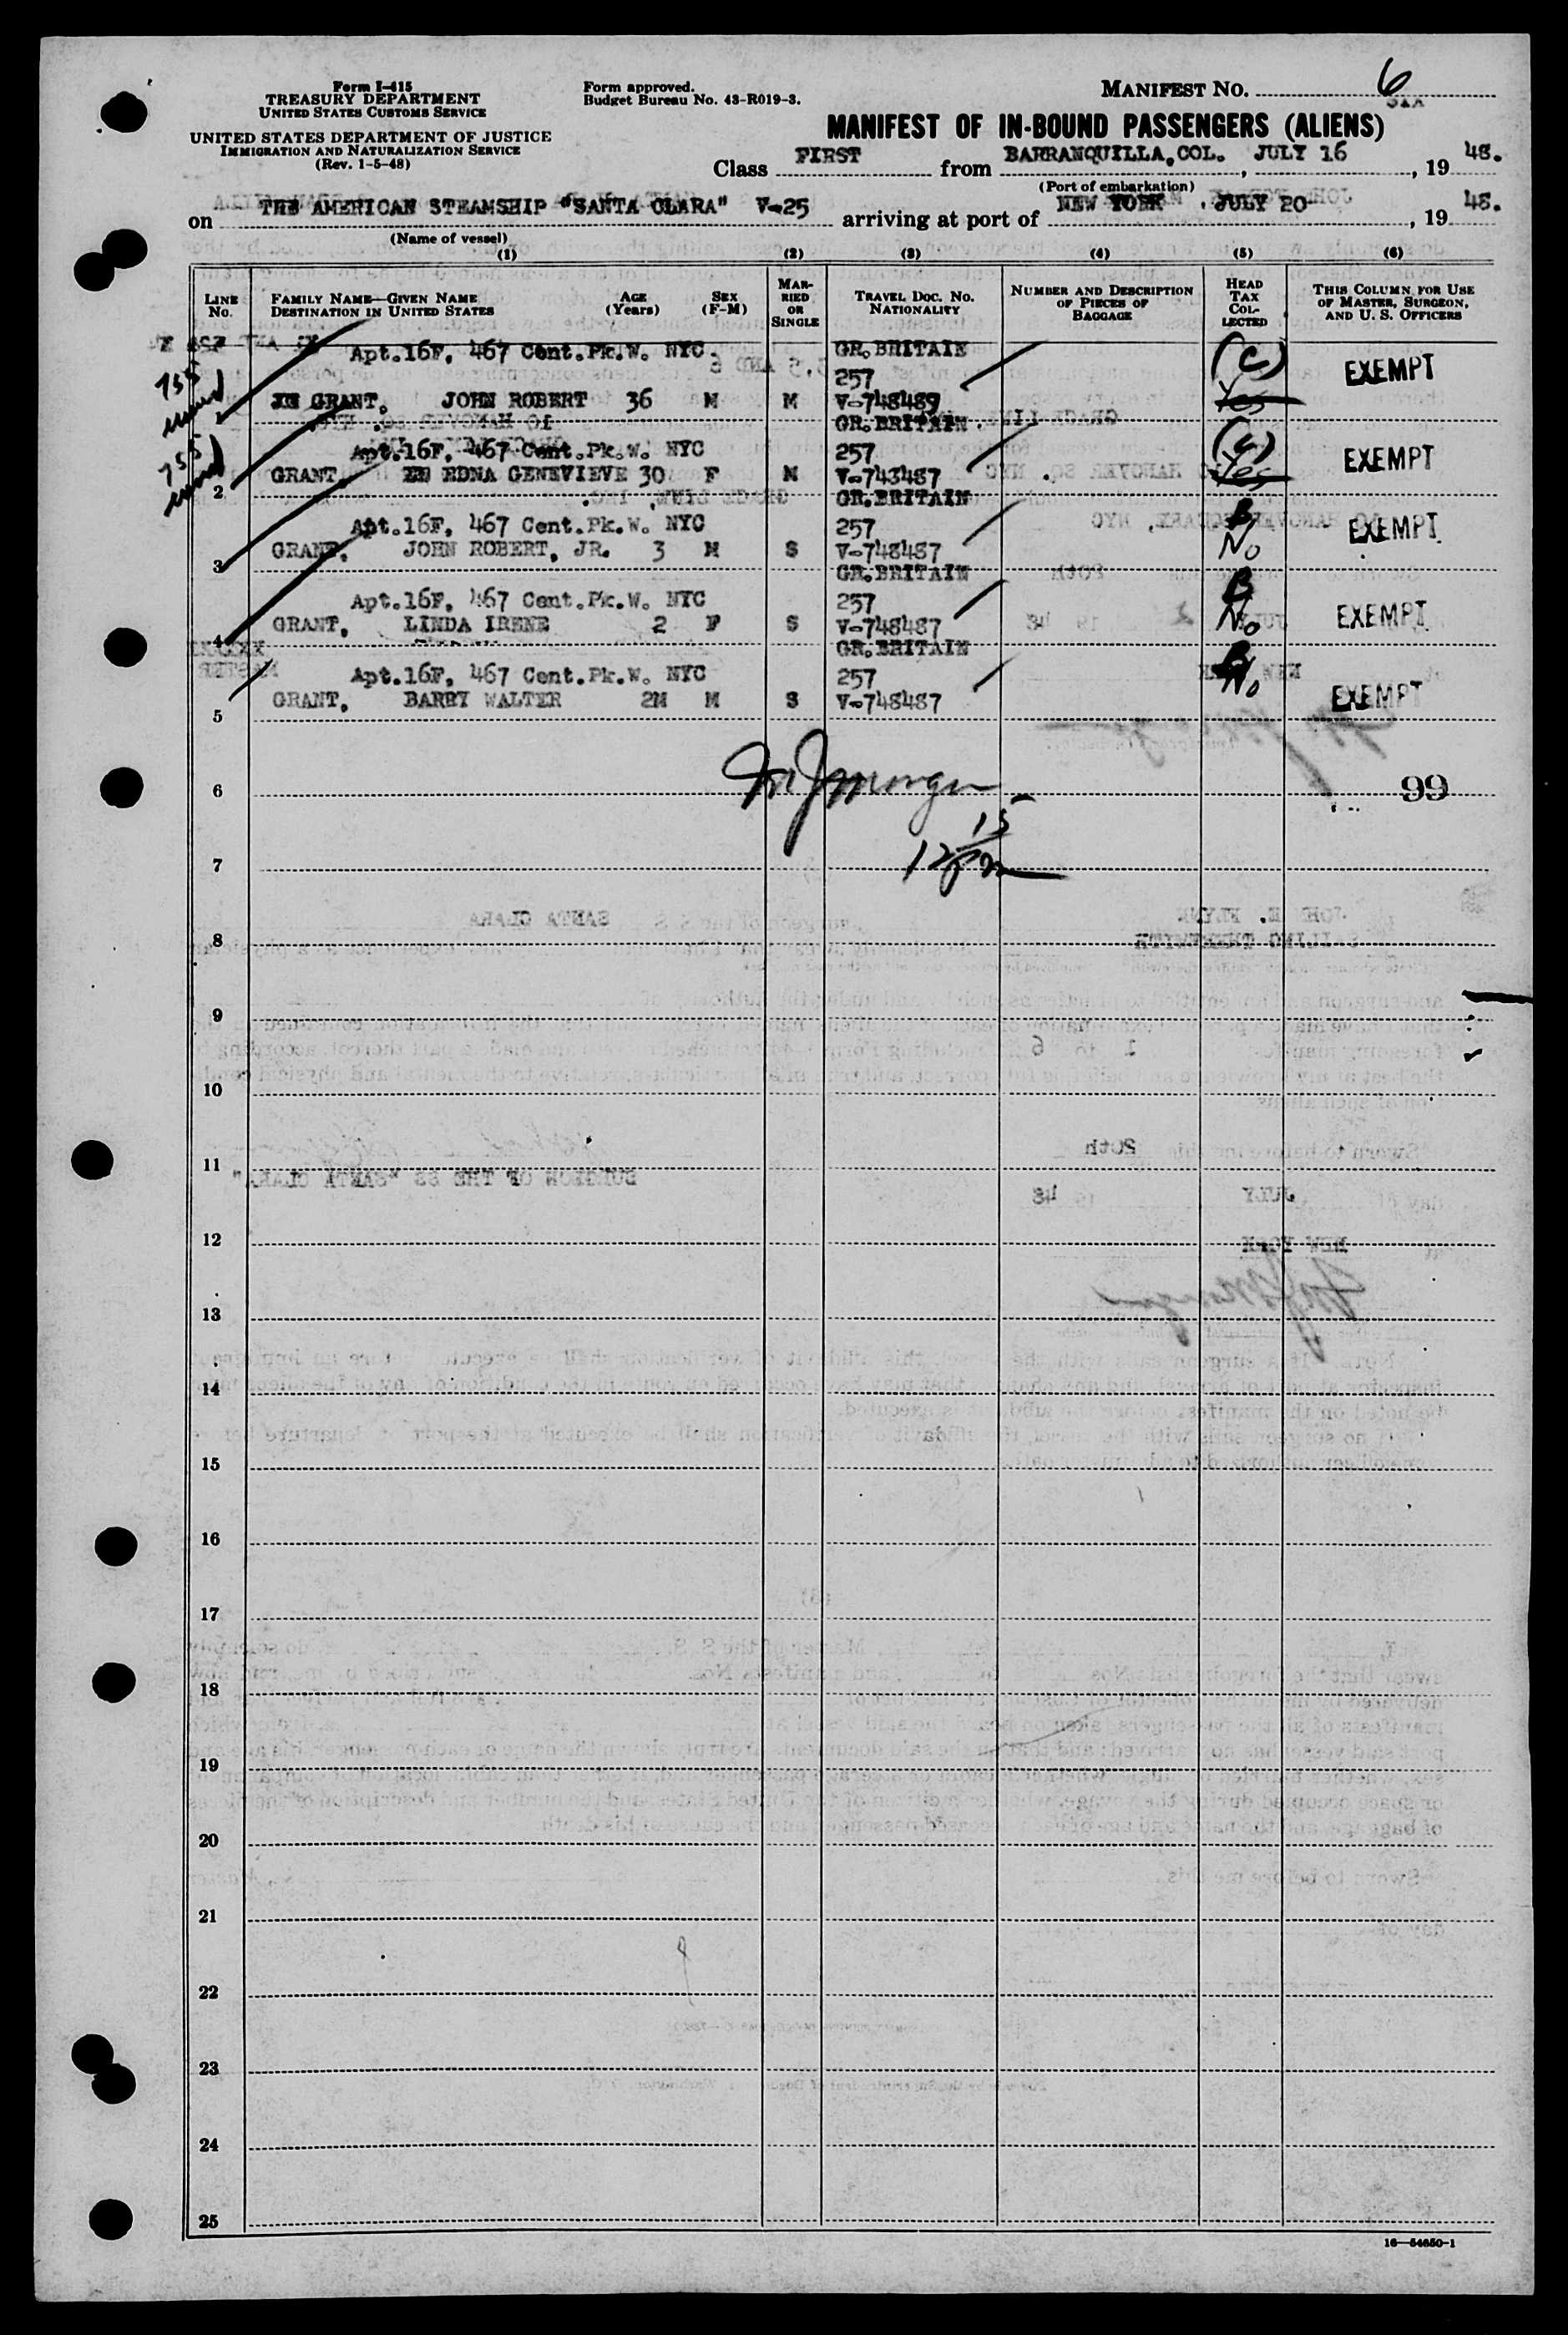 Form I-415
TREASURY DEPARTMENT
UNITED STATES CUSTOMS SERVICE
UNITED STATES DEPARTMENT OF JUSTICE
IMMIGRATION AND NATURALIZATION SERVICE
(Rev. 1-5-48)
Form approved.
Budget Bureau No. 43-R019-3.
MANIFEST NO. 6
MANIFEST OF IN-BOUND PASSENGERS (ALIENS)
Class FIRST from BARRANQUILLA, COL. JULY 16, 19 48.
(Port of embarkation)
on THE AMERICAN STEAMSHIP "SANTA CLARA" V-25 arriving at port of NEW YORK JULY 20, 19 48.
(Name of vessel)
(1) (2) (3) (4) (5) (6)
LINE No. FAMILY NAME—GIVEN NAME DESTINATION IN UNITED STATES AGE (Years) SEX (F-M) MARRIED OR SINGLE TRAVEL DOC. NO. NATIONALITY NUMBER AND DESCRIPTION OF PIECES OF BAGGAGE HEAD TAX COLLECTED THIS COLUMN FOR USE OF MASTER, SURGEON, AND U. S. OFFICERS
Apt.16F, 467 Cent.Pk.W. NYC. GR.BRITAIN (C) EXEMPT
257
GRANT, JOHN ROBERT 36 M M V-748489 Yes
GR.BRITAIN
Apt.16F, 467 Cent.Pk.W. NYC 257 (C) EXEMPT
2 GRANT, EDNA GENEVIEVE 30 F M V-743487 Yes
GR.BRITAIN
Apt.16F, 467 Cent.Pk.W. NYC 257 B EXEMPT
3 GRANT, JOHN ROBERT, JR. 3 M S V-748487 No
GR.BRITAIN
Apt.16F, 467 Cent.Pk.W. NYC 257 B EXEMPT
4 GRANT, LINDA IRENE 2 F S V-748487 No
GR.BRITAIN
Apt.16F, 467 Cent.Pk.W. NYC 257 B EXEMPT
5 GRANT, BARRY WALTER 2M M S V-748487 No
6 99
7
8
9
10
11
12
13
14
15
16
17
18
19
20
21
22
23
24
25
16—54650-1